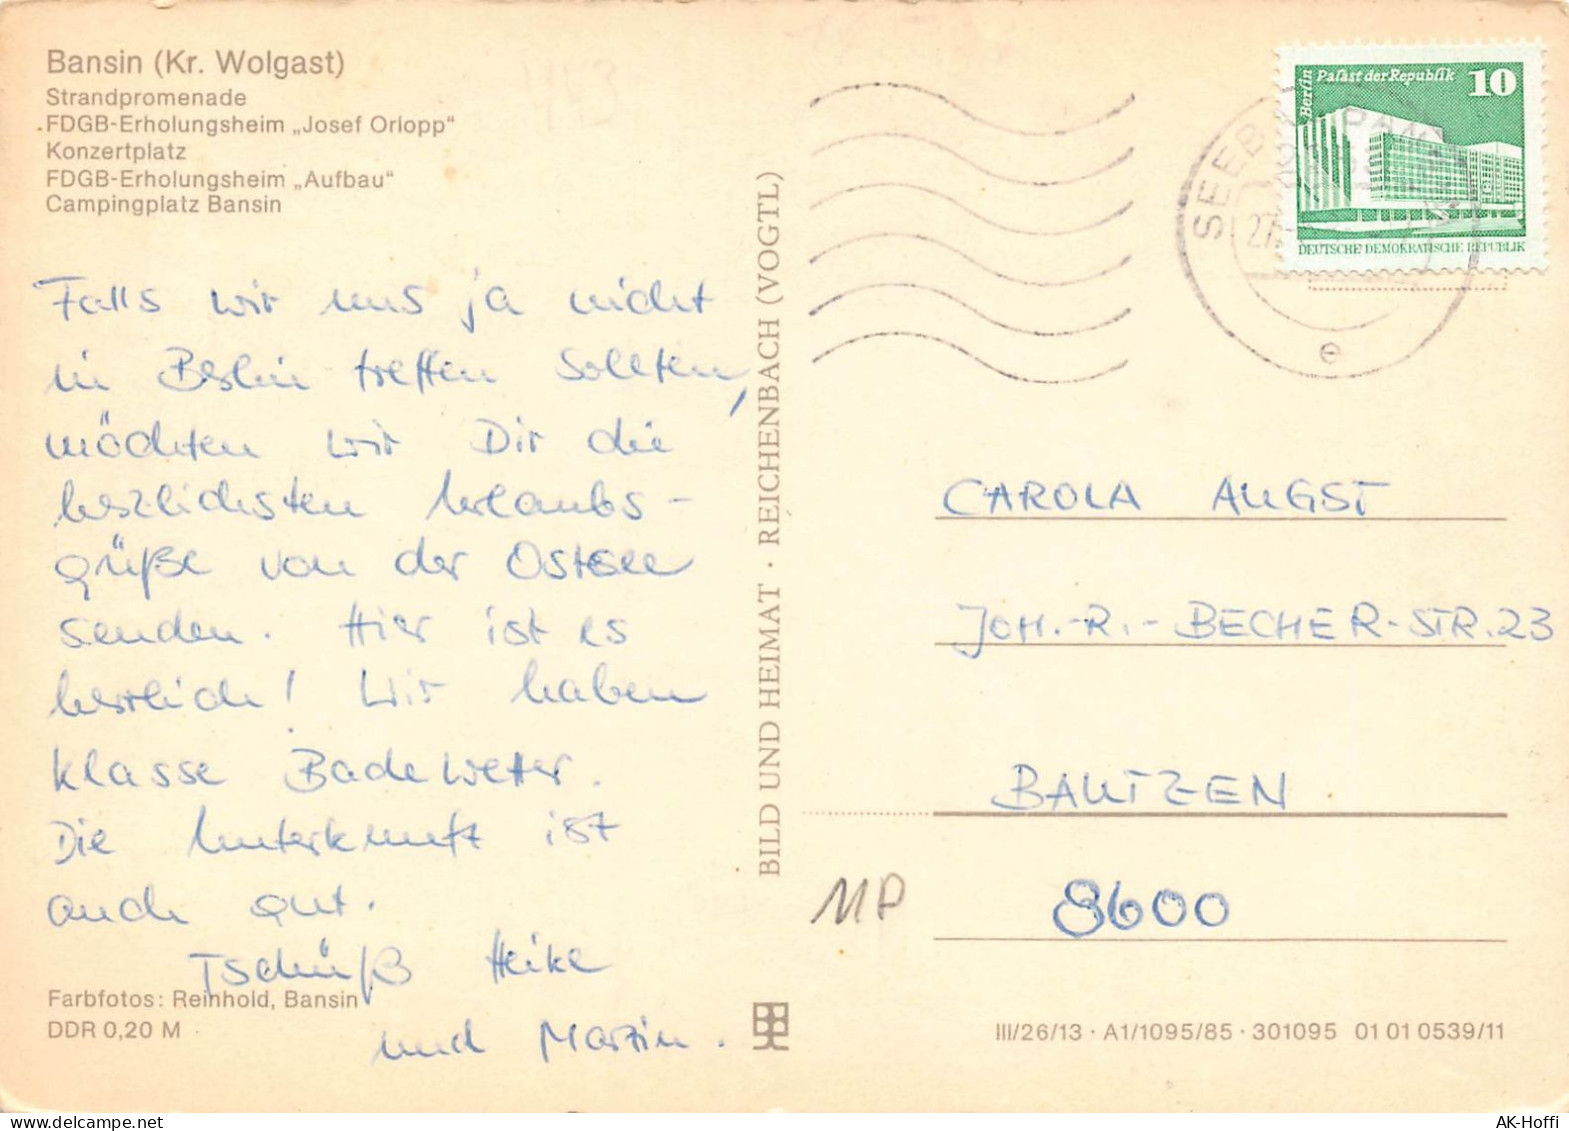 Bansin (Kr. Wolgast)
Strandpromenade
FDGB-Erholungsheim „Josef Orlopp"
Konzertplatz
FDGB-Erholungsheim „Aufbau"
Campingplatz Bansin
Falls wir uns ja nicht
in Berlin treffen sollten,
möchten wir Dir die
herzlichsten Urlaubs-
grüße von der Ostsee
senden. Hier ist es
herrlich! Wir haben
klasse Badewetter.
Die Unterkunft ist
auch gut.
Tschüß Heike
und Martin.
Farbfotos: Reinhold, Bansin
DDR 0,20 M
BILD UND HEIMAT · REICHENBACH (VOGTL)
Berlin Palast der Republik 10
DEUTSCHE DEMOKRATISCHE REPUBLIK
SEEBAD
27
e
CAROLA AUGST
JOH.-R.-BECHER-STR. 23
BAUTZEN
8600
MP
III/26/13 · A1/1095/85 · 301095 01 01 0539/11
AK-Hoffi